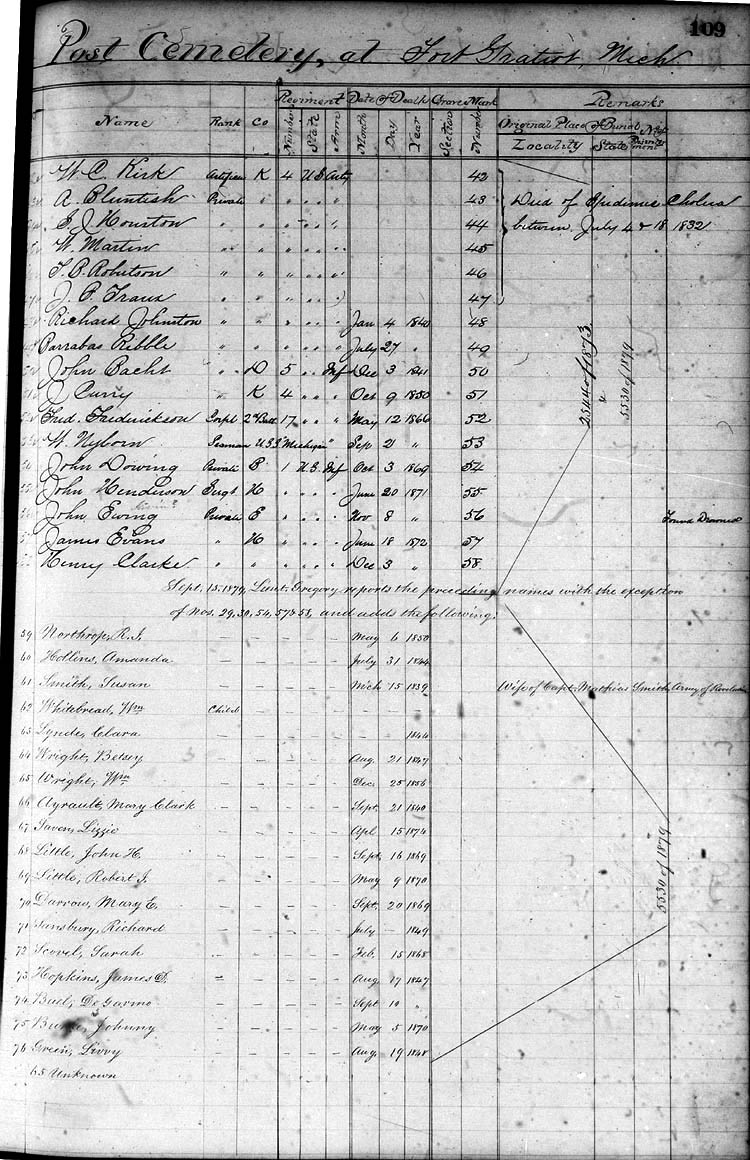 109
Post Cemetery, at Fort Gratiot, Mich
Regiment Date of Death Grave Mark Remarks
Name Rank Co Number State Arm Month Day Year Section Number Original Place of Burial
Locality State
W. C. Kirk Artificer K 4 U S Arty 42
A. Cluntish Private " " " " 43 Died of Epidemic Cholera
E. J. Houston " " " " " 44 between July 4 & 18 1832
W. Martin " " " " " 45
T. P. Robertson " " " " " 46
J. P. Traux " " " " " 47
Richard Johnston " " " " " Jan 4 1840 48
Barrabas Ribble " " " " " July 27 " 49
John Bacht " D 5 " Inf Dec 3 1841 50
J Curry " K 4 " " Oct 9 1850 51
Fred. Frederickson Corpl 2d Batt 17 " " May 12 1866 52
W. Nyborn Seaman U.S.S "Michigan" Sep 21 " 53
John Dowing Private B 1 U.S. Inf Oct 3 1869 54
John Henderson Sergt H " " " June 20 1871 55
John Ewing Private E " " " Nov 8 " 56 Found Drowned
James Evans " H " " " June 18 1872 57
Henry Clarke " " " " " Dec 3 " 58
2544 of 1873
&
5530 of 1879
Sept. 15. 1879, Lieut. Gregory reports the preceding names with the exception
of Nos. 29, 30, 54, 57 & 58, and adds the following:
59 Northrop, R. J. — — — — — May 6 1850
60 Hollins, Amanda — — — — — July 31 1844
61 Smith, Susan — — — — — Mch 15 1839 Wife of Capt. Mathias Smith, Army of Revolution
62 Whitebread, Wm Child — — — — — — —
63 Lynde, Clara — — — — — — 1844
64 Wright, Betsey — — — — — Aug. 21 1847
65 Wright, Wm — — — — — Dec. 25 1856
66 Ayrault, Mary Clark — — — — — Sept. 21 1840
67 Saven, Lizzie — — — — — Apl. 15 1874
68 Little, John H. — — — — — Sept. 16 1869
69 Little, Robert J. — — — — — May 9 1870
70 Darrow, Mary E. — — — — — Sept. 20 1869
71 Sansbury, Richard — — — — — July — 1849
72 Scovel, Sarah — — — — — Feb. 15 1868
73 Hopkins, James D. — — — — — Aug 17 1847
74 Buel, De Garmo — — — — — Sept 10 "
75 Johnny — — — — — May 5 1870
76 Green, Livvy — — — — — Aug. 19 1848
65 Unknown
5530 of 1879